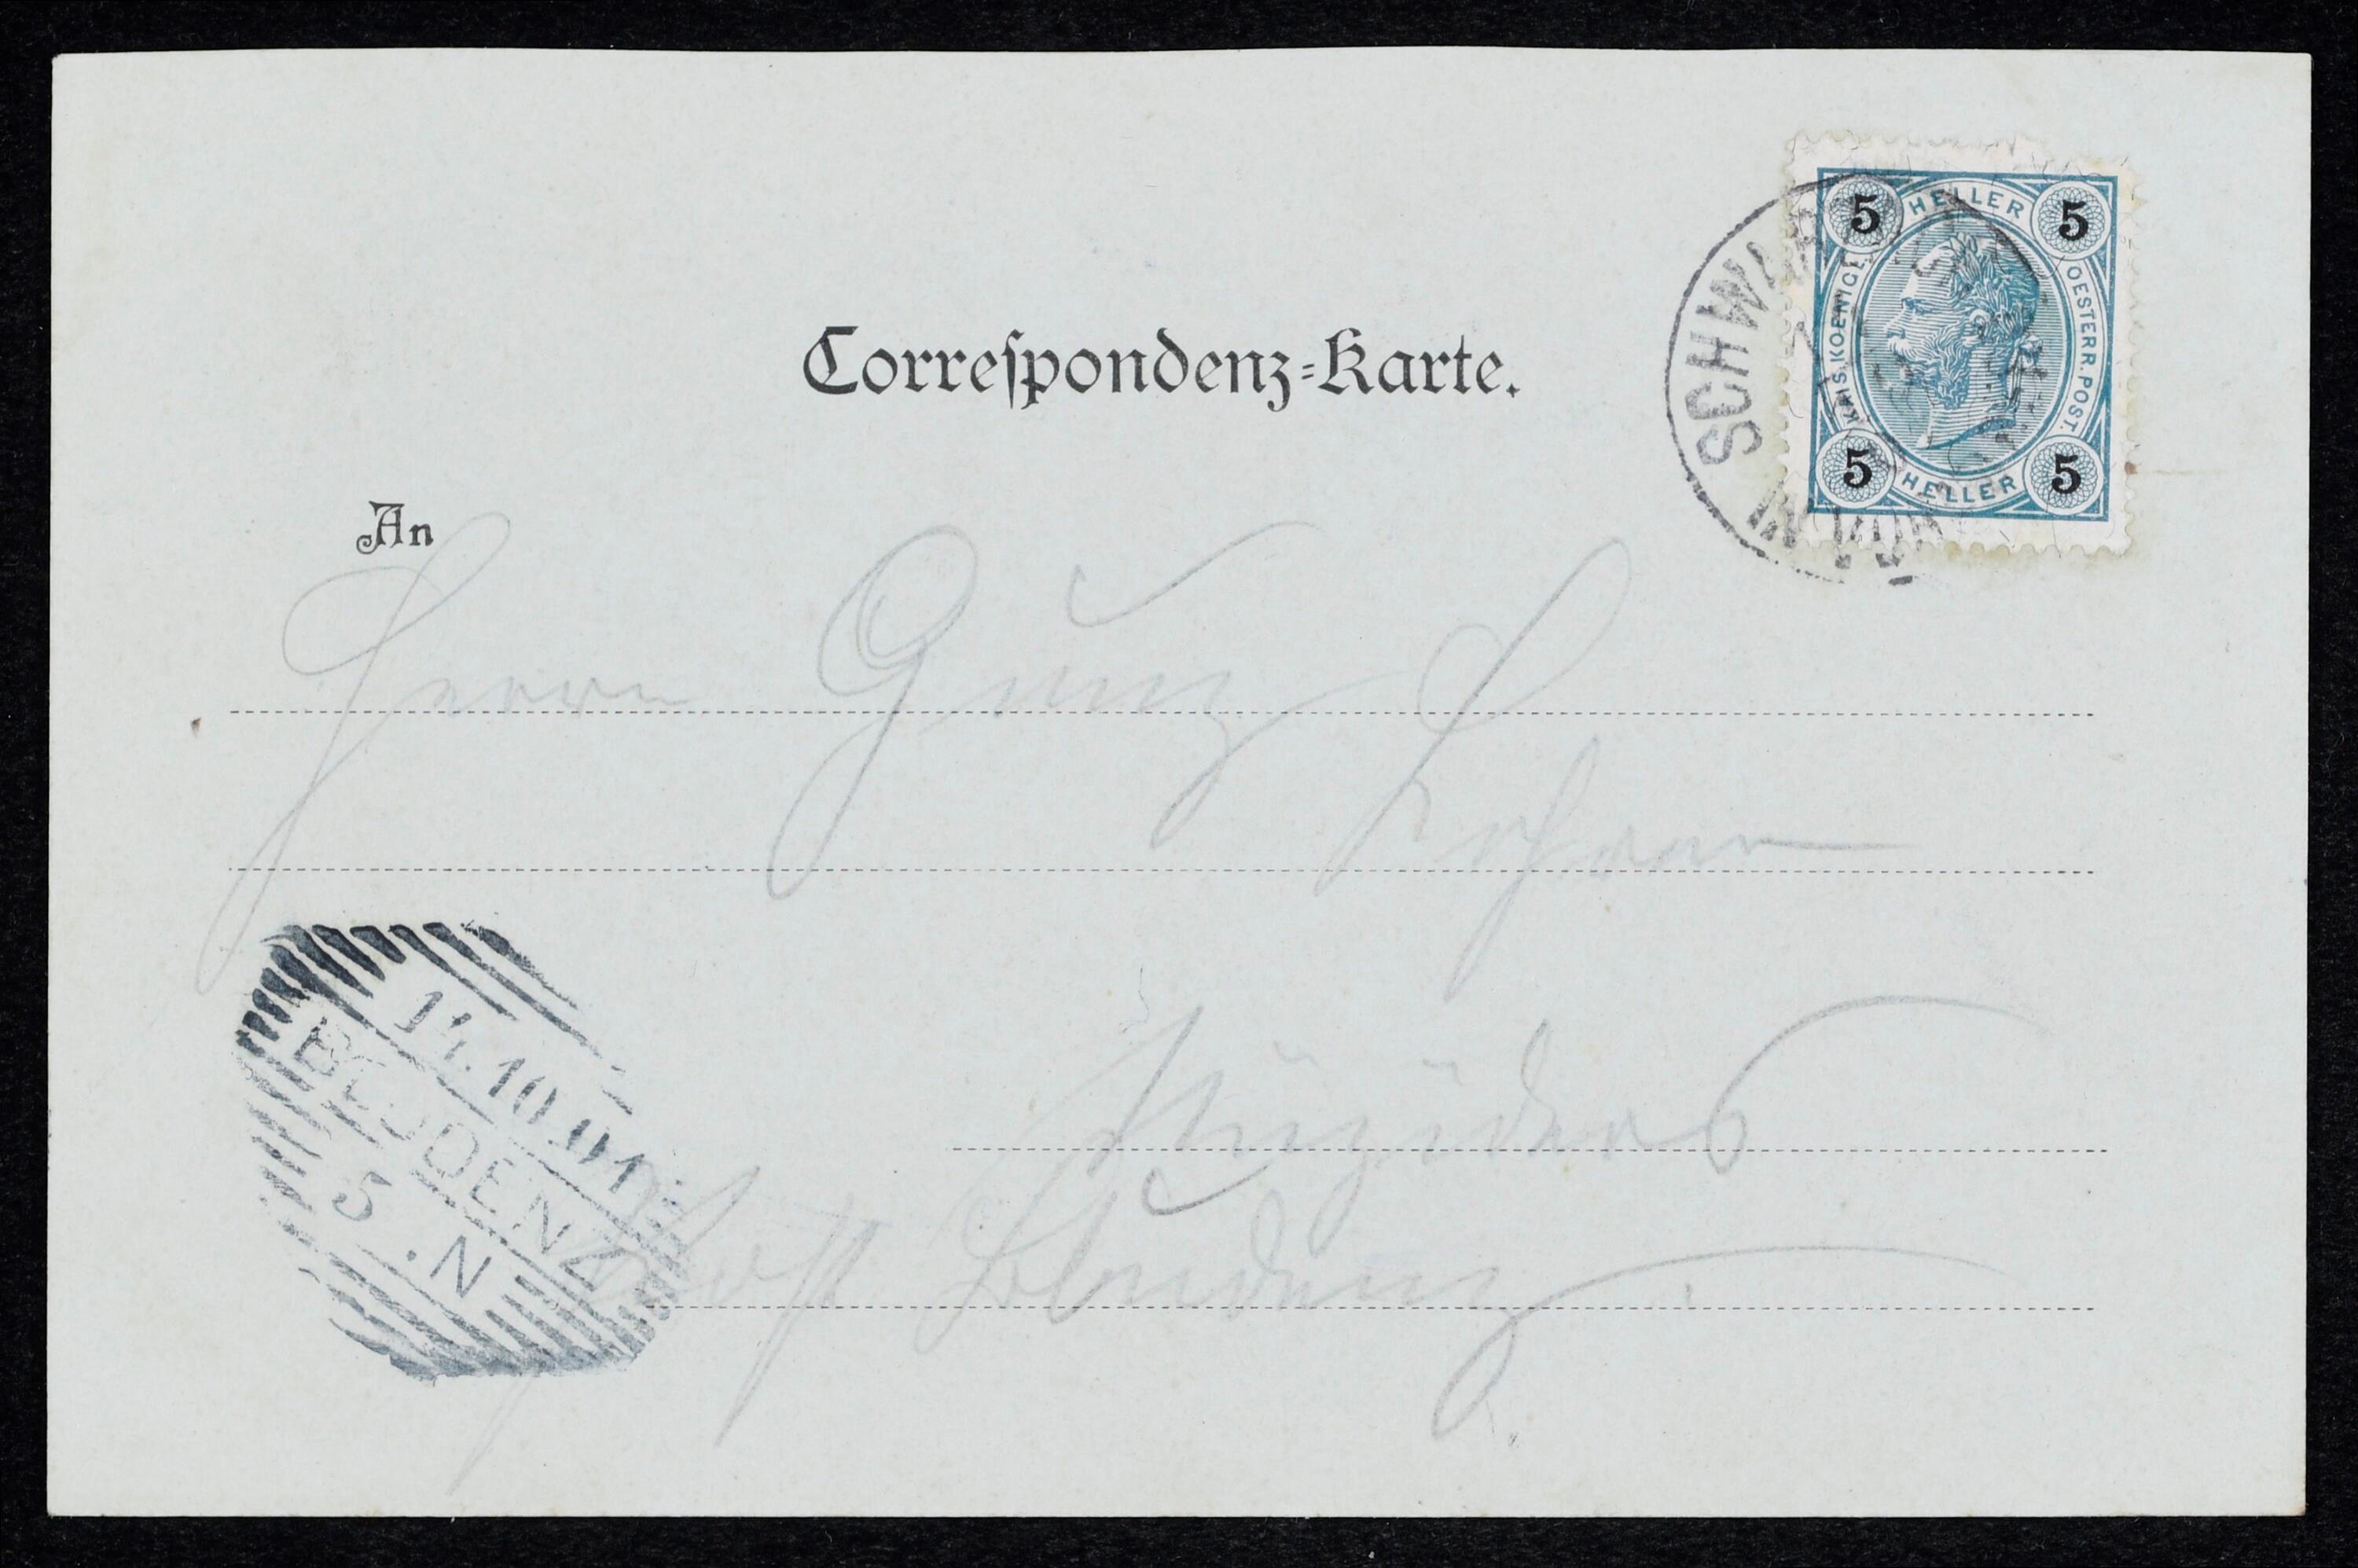 Correspondenz-Karte.
5 HELLER 5
KAIS. KOENIGL. OESTERR. POST.
5 HELLER 5
SCHWARZ
An
Herrn Gunz
Nüziders
Post Bludenz
14.10.01
BLUDENZ
5.N